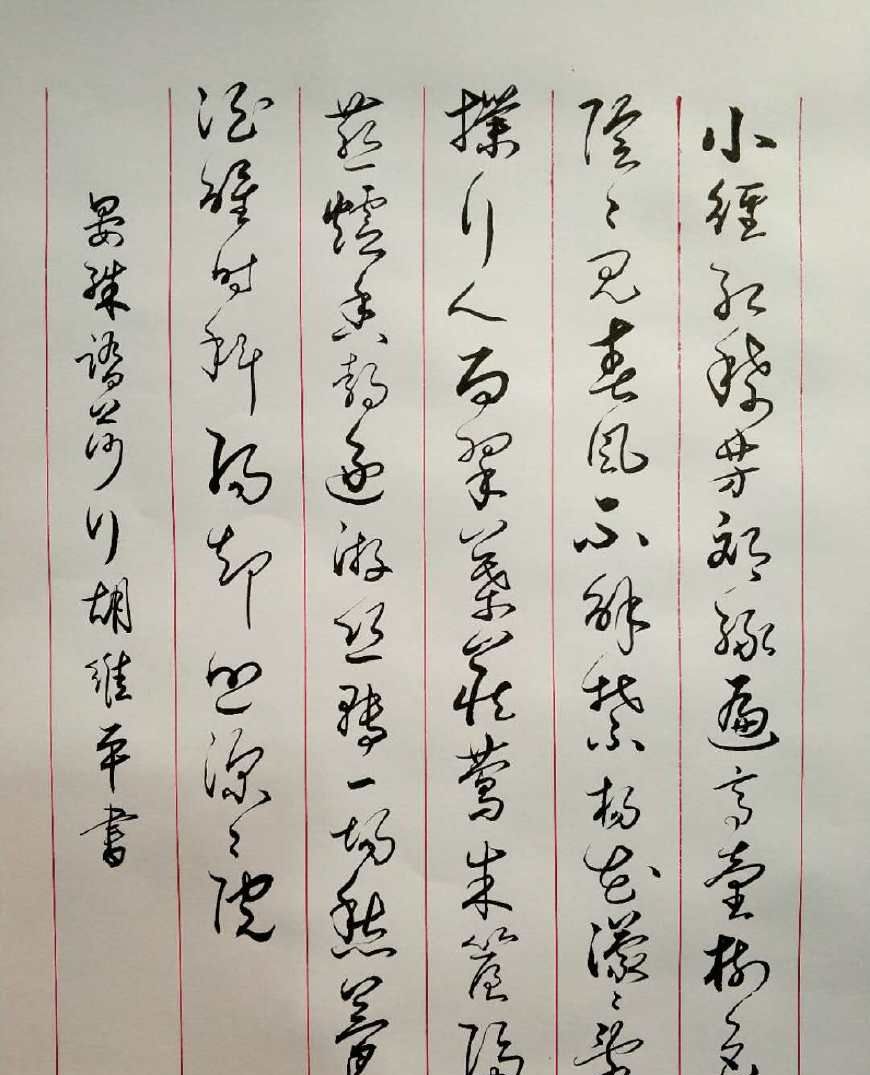 小徑紅稀芳郊綠遍高臺樹色
陰々見春風不解禁楊花濛々亂
撲行人面翠葉藏鶯朱簾隔
燕爐香静逐游絲轉一場愁夢
酒醒时斜陽却照深々院
晏殊踏莎行胡維平書